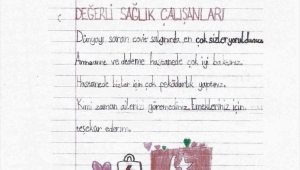 DEĞERLİ SAĞLIK ÇALIŞANLARI
Dünyayı saran covit salgınında en çok sizler yoruldunuz
Anneanne ve dedeme hastanede çok iyi baktınız.
Hastanede bizler için çok fedakarlık yaptınız.
Kimi zaman ailenizi göremediniz. Emekleriniz için
teşekkür ederim.